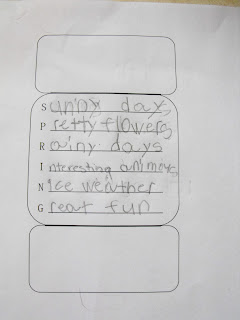 Sunny days
Pretty flowers
Rainy days
Interesting
Nice weather
Great fun